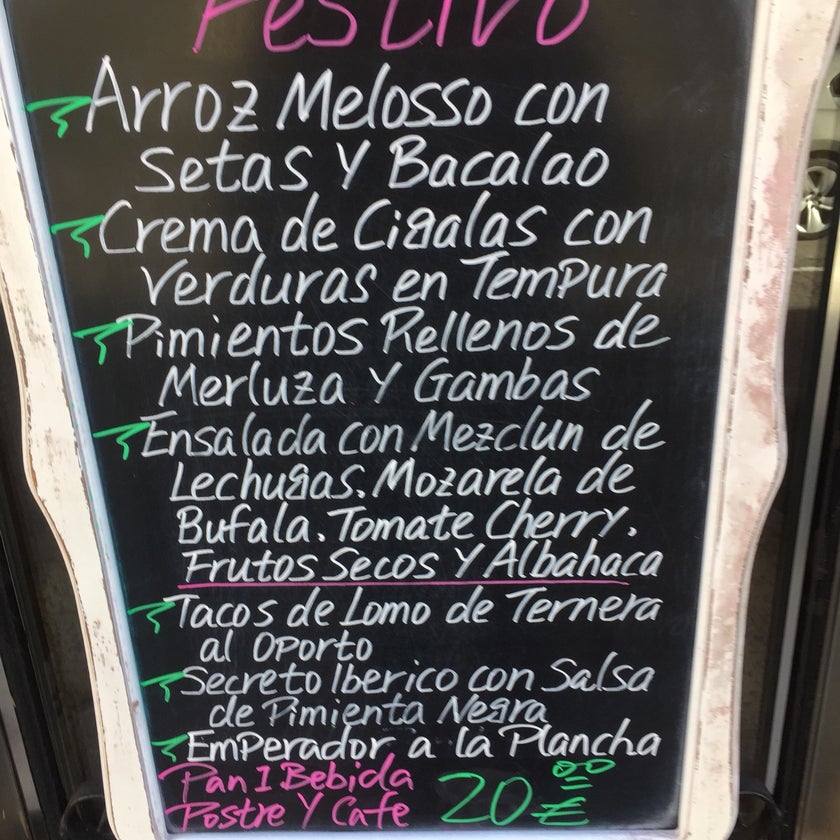 Festivo
Arroz Melosso con
Setas Y Bacalao
Crema de Cigalas con
Verduras en Tempura
Pimientos Rellenos de
Merluza Y Gambas
Ensalada con Mezclun de
Lechugas. Mozarela de
Bufala. Tomate Cherry.
Frutos Secos Y Albahaca
Tacos de Lomo de Ternera
al Oporto
Secreto Iberico con Salsa
de Pimienta Negra
Emperador a la Plancha
Pan 1 Bebida
Postre Y Cafe 20 00 €